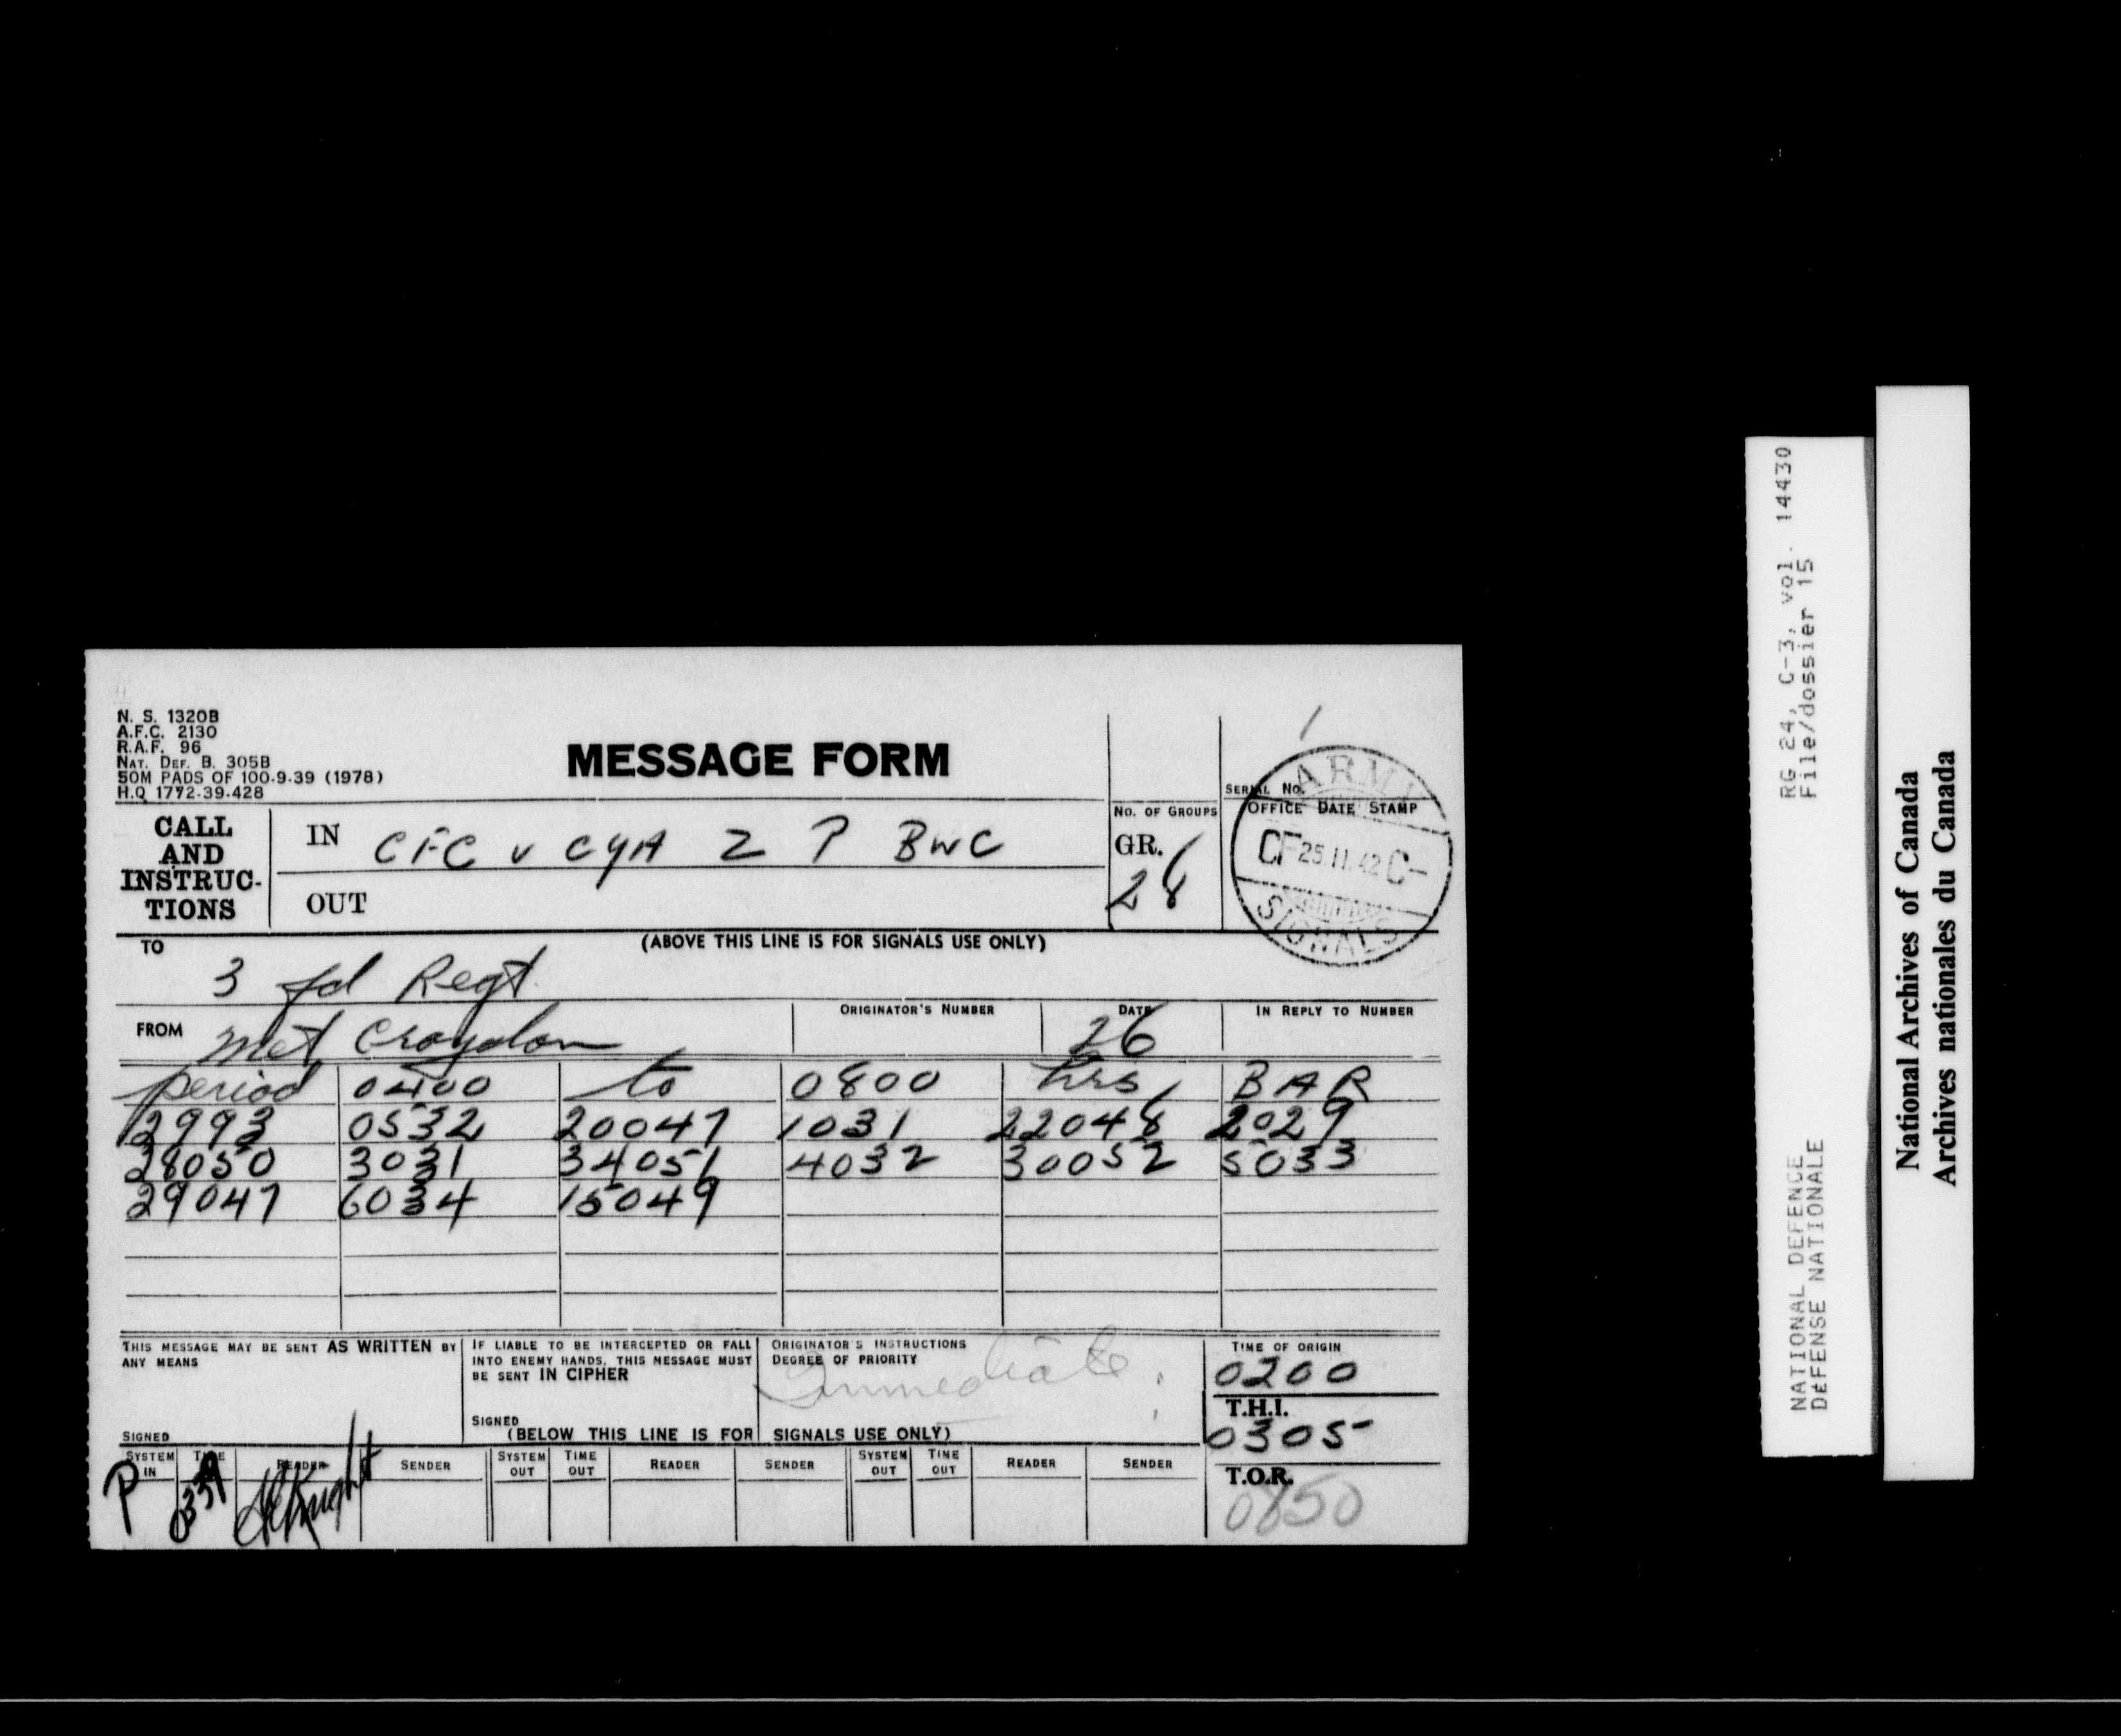 N. S. 1320B
A.F.C. 2130
R.A.F. 96
NAT. DEF. B. 305B
50M PADS OF 100-9-39 (1978)
H.Q 1772-39-428
MESSAGE FORM
SERIAL NO.
CALL AND INSTRUC-TIONS
IN CFC v CYA 2 P BWC
OUT
NO. OF GROUPS
GR.
28
OFFICE DATE STAMP
ARMY
CF 25.11.42 C-
SIGNALS
(ABOVE THIS LINE IS FOR SIGNALS USE ONLY)
TO
3 fd Regt.
FROM met Croydon
ORIGINATOR'S NUMBER
DATE
26
IN REPLY TO NUMBER
period 0400 to 0800 hrs BAR
2993 0532 20047 1031 22048 2029
28050 3031 34051 4032 30052 5033
29047 6034 15049
THIS MESSAGE MAY BE SENT AS WRITTEN BY ANY MEANS
SIGNED
IF LIABLE TO BE INTERCEPTED OR FALL INTO ENEMY HANDS, THIS MESSAGE MUST BE SENT IN CIPHER
SIGNED
ORIGINATOR'S INSTRUCTIONS
DEGREE OF PRIORITY
Immediate
TIME OF ORIGIN
0200
T.H.I.
0305
(BELOW THIS LINE IS FOR SIGNALS USE ONLY)
SYSTEM IN TIME READER SENDER SYSTEM OUT TIME OUT READER SENDER SYSTEM OUT TIME OUT READER SENDER
P Knight
T.O.R.
0850
RG 24, C-3, vol. 14430
File/dossier 15
NATIONAL DEFENCE
DÉFENSE NATIONALE
National Archives of Canada
Archives nationales du Canada